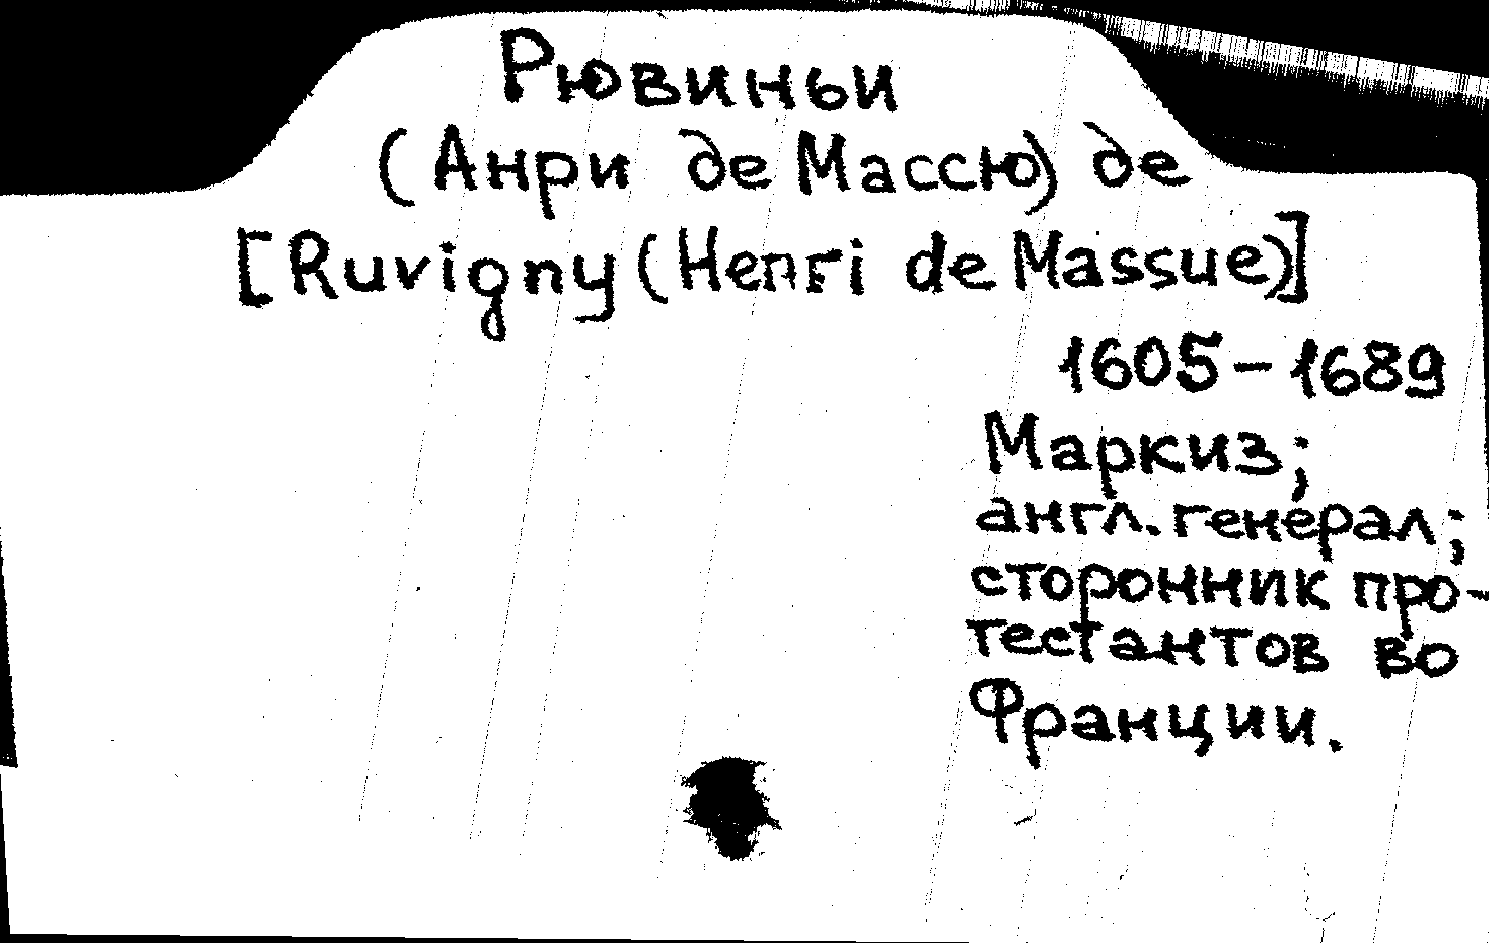 Рювиньи
(Анри де Массю) де
[Ruvigny (Henri de Massue)]
1605-1689
Маркиз;
англ. генерал;
сторонник про-
тестантов во
Франции.